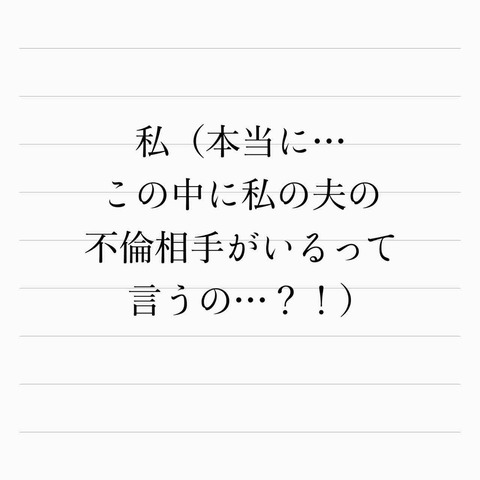 私（本当に…
この中に私の夫の
不倫相手がいるって
言うの…？！）